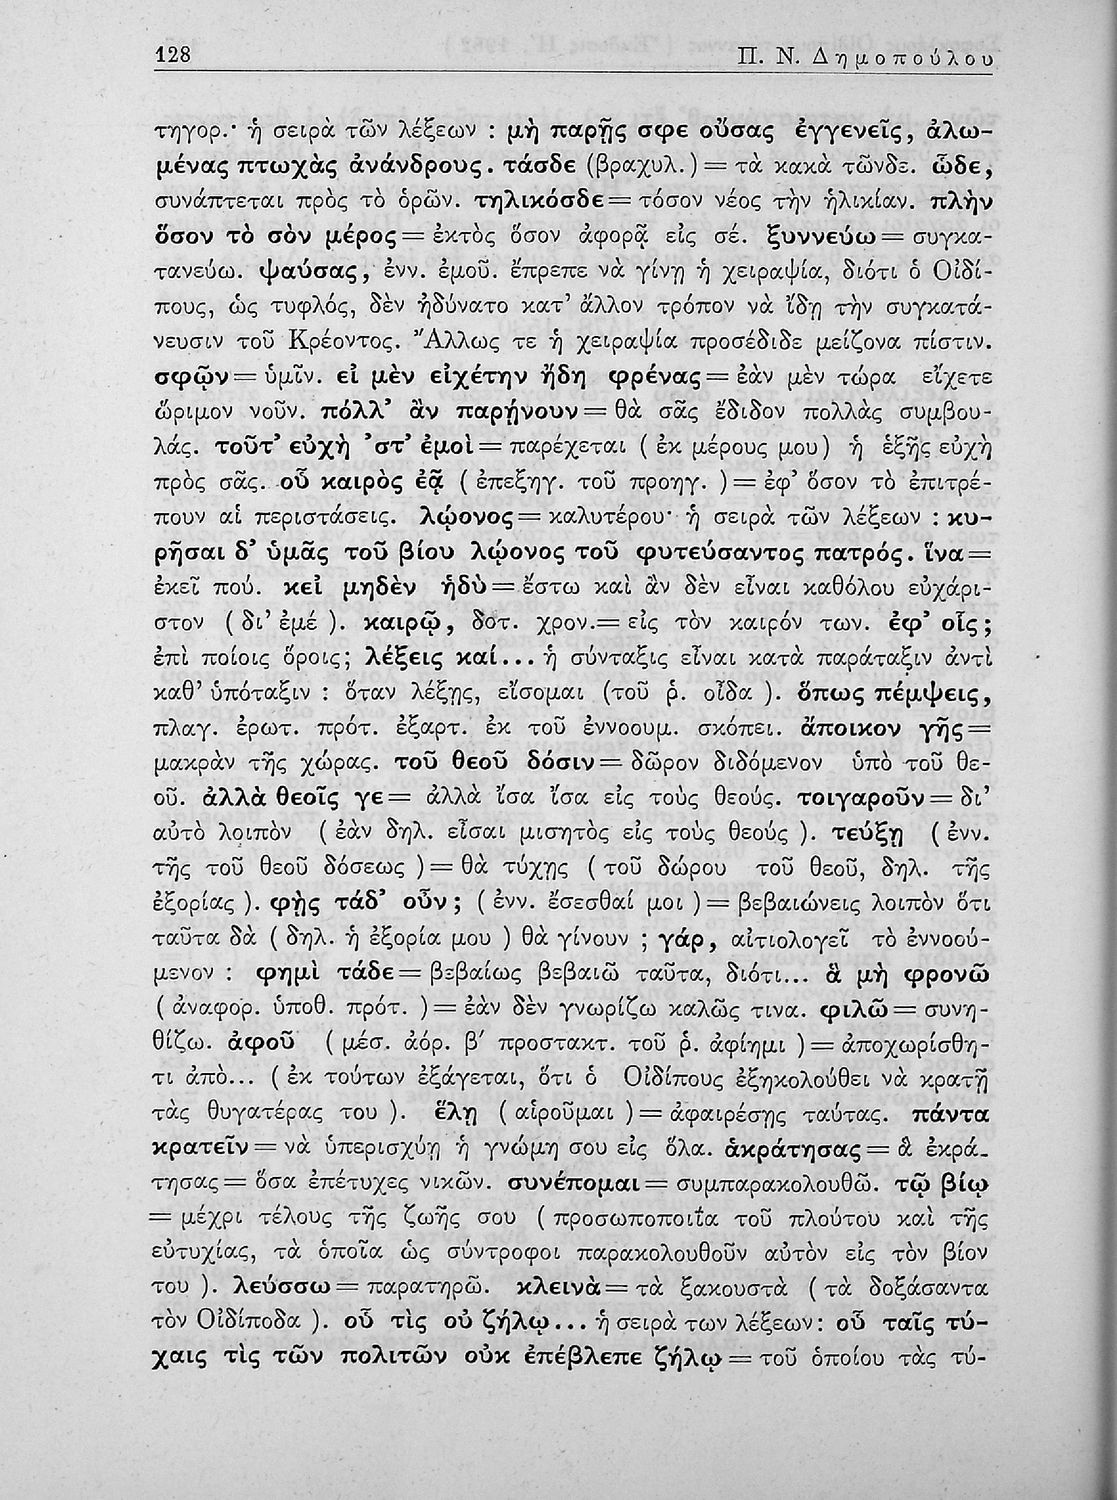 128 Π. Ν. Δημοπούλου
τηγορ.· ἡ σειρὰ τῶν λέξεων : μὴ παρῇς σφε οὔσας ἐγγενεῖς, ἀλω-
μένας πτωχὰς ἀνάνδρους. τάσδε (βραχυλ.) = τὰ κακὰ τῶνδε. ὧδε,
συνάπτεται πρὸς τὸ ὁρῶν. τηλικόσδε = τόσον νέος τὴν ἡλικίαν. πλὴν
ὅσον τὸ σὸν μέρος = ἐκτὸς ὅσον ἀφορᾷ εἰς σέ. ξυννεύω = συγκα-
τανεύω. ψαύσας, ἐνν. ἐμοῦ. ἔπρεπε νὰ γίνῃ ἡ χειραψία, διότι ὁ Οἰδί-
πους, ὡς τυφλός, δὲν ἠδύνατο κατ’ ἄλλον τρόπον νὰ ἴδῃ τὴν συγκατά-
νευσιν τοῦ Κρέοντος. Ἄλλως τε ἡ χειραψία προσέδιδε μείζονα πίστιν.
σφῷν = ὑμῖν. εἰ μὲν εἰχέτην ἤδη φρένας = ἐὰν μὲν τώρα εἴχετε
ὥριμον νοῦν. πόλλ’ ἂν παρῄνουν = θὰ σᾶς ἔδιδον πολλὰς συμβου-
λάς. τοῦτ’ εὐχὴ ’στ’ ἐμοὶ = παρέχεται ( ἐκ μέρους μου) ἡ ἑξῆς εὐχὴ
πρὸς σᾶς. οὗ καιρὸς ἐᾷ ( ἐπεξηγ. τοῦ προηγ. ) = ἐφ’ ὅσον τὸ ἐπιτρέ-
πουν αἱ περιστάσεις. λῴονος = καλυτέρου· ἡ σειρὰ τῶν λέξεων : κυ-
ρῆσαι δ’ ὑμᾶς τοῦ βίου λῴονος τοῦ φυτεύσαντος πατρός. ἵνα =
ἐκεῖ πού. κεἰ μηδὲν ἡδὺ = ἔστω καὶ ἂν δὲν εἶναι καθόλου εὐχάρι-
στον ( δι’ ἐμέ ). καιρῷ, δοτ. χρον.= εἰς τὸν καιρόν των. ἐφ’ οἷς;
ἐπὶ ποίοις ὅροις; λέξεις καί... ἡ σύνταξις εἶναι κατὰ παράταξιν ἀντὶ
καθ’ ὑπόταξιν : ὅταν λέξῃς, εἴσομαι (τοῦ ῥ. οἶδα ). ὅπως πέμψεις,
πλαγ. ἐρωτ. πρότ. ἐξαρτ. ἐκ τοῦ ἐννοουμ. σκόπει. ἄποικον γῆς =
μακρὰν τῆς χώρας. τοῦ θεοῦ δόσιν = δῶρον διδόμενον ὑπὸ τοῦ θε-
οῦ. ἀλλὰ θεοῖς γε = ἀλλὰ ἴσα ἴσα εἰς τοὺς θεούς. τοιγαροῦν = δι’
αὐτὸ λοιπὸν ( ἐὰν δηλ. εἶσαι μισητὸς εἰς τοὺς θεούς ). τεύξῃ ( ἐνν.
τῆς τοῦ θεοῦ δόσεως ) = θὰ τύχῃς ( τοῦ δώρου τοῦ θεοῦ, δηλ. τῆς
ἐξορίας ). φῂς τάδ’ οὖν ; ( ἐνν. ἔσεσθαί μοι ) = βεβαιώνεις λοιπὸν ὅτι
ταῦτα δὰ ( δηλ. ἡ ἐξορία μου ) θὰ γίνουν ; γάρ, αἰτιολογεῖ τὸ ἐννοού-
μενον : φημὶ τάδε = βεβαίως βεβαιῶ ταῦτα, διότι... ἃ μὴ φρονῶ
( ἀναφορ. ὑποθ. πρότ. ) = ἐὰν δὲν γνωρίζω καλῶς τινα. φιλῶ = συνη-
θίζω. ἀφοῦ ( μέσ. ἀόρ. β′ προστακτ. τοῦ ῥ. ἀφίημι ) = ἀποχωρίσθη-
τι ἀπὸ... ( ἐκ τούτων ἐξάγεται, ὅτι ὁ Οἰδίπους ἐξηκολούθει νὰ κρατῇ
τὰς θυγατέρας του ). ἕλῃ ( αἱροῦμαι ) = ἀφαιρέσῃς ταύτας. πάντα
κρατεῖν = νὰ ὑπερισχύῃ ἡ γνώμη σου εἰς ὅλα. ἁκράτησας = ἃ ἐκρά-
τησας = ὅσα ἐπέτυχες νικῶν. συνέπομαι = συμπαρακολουθῶ. τῷ βίῳ
= μέχρι τέλους τῆς ζωῆς σου ( προσωποποιΐα τοῦ πλούτου καὶ τῆς
εὐτυχίας, τὰ ὁποῖα ὡς σύντροφοι παρακολουθοῦν αὐτὸν εἰς τὸν βίον
του ). λεύσσω = παρατηρῶ. κλεινὰ = τὰ ξακουστὰ ( τὰ δοξάσαντα
τὸν Οἰδίποδα ). οὗ τὶς οὐ ζήλῳ... ἡ σειρὰ των λέξεων: οὗ ταῖς τύ-
χαις τὶς τῶν πολιτῶν οὐκ ἐπέβλεπε ζήλῳ = τοῦ ὁποίου τὰς τύ-